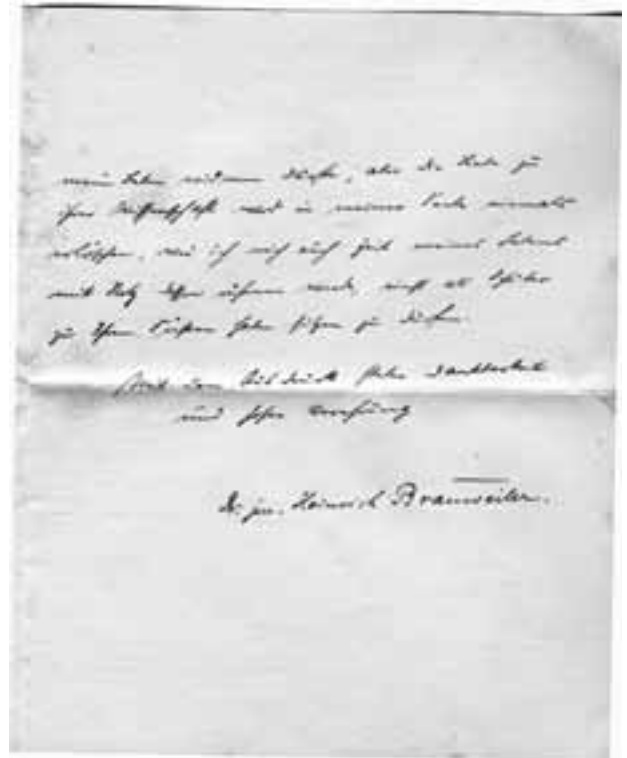 mein Leben widmen dürfte, aber die Liebe zu
Ihrer Wissenschaft wird in meiner Seele niemals
erlöschen, wie ich mich auch Zeit meines Lebens
mit Stolz dessen rühmen werde, einst als Schüler
zu Ihren Füßen haben sitzen zu dürfen.
Mit dem Ausdruck steter Dankbarkeit
und hoher Verehrung
Dr. jur. Heinrich Brauweiler.